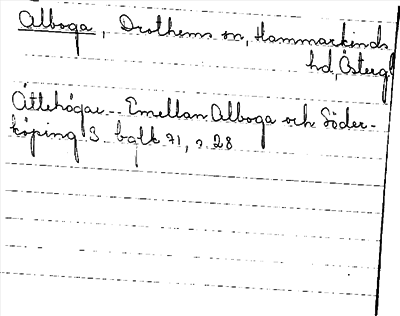 Alboga, Drothems sn, Hammarkinds
hd, Österg.
Ättehögar. - Emellan Alboga och Söder-
köping S bglb 71, s 28